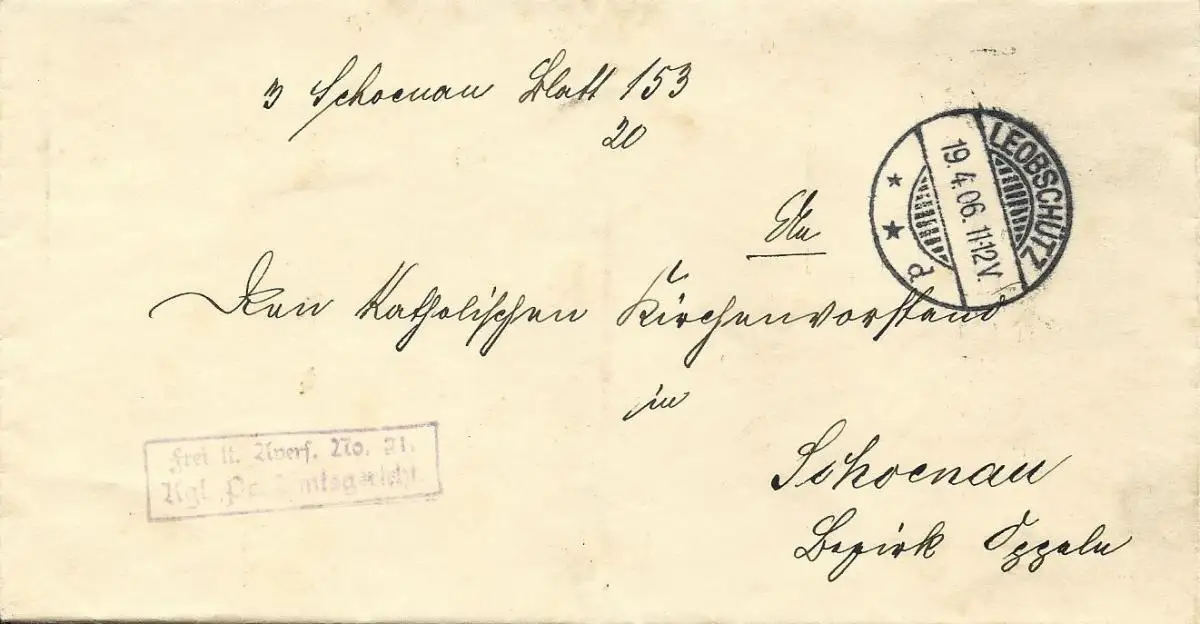 3 Schoenau Blatt 153
20
An
Den Katholischen Kirchenvorstand
in
Schoenau
Bezirk Oppeln
LEOBSCHÜTZ
19.4.06.11-12V.
* * d
Frei lt. Avers. No. 21.
Kgl. Pr. Amtsgericht.